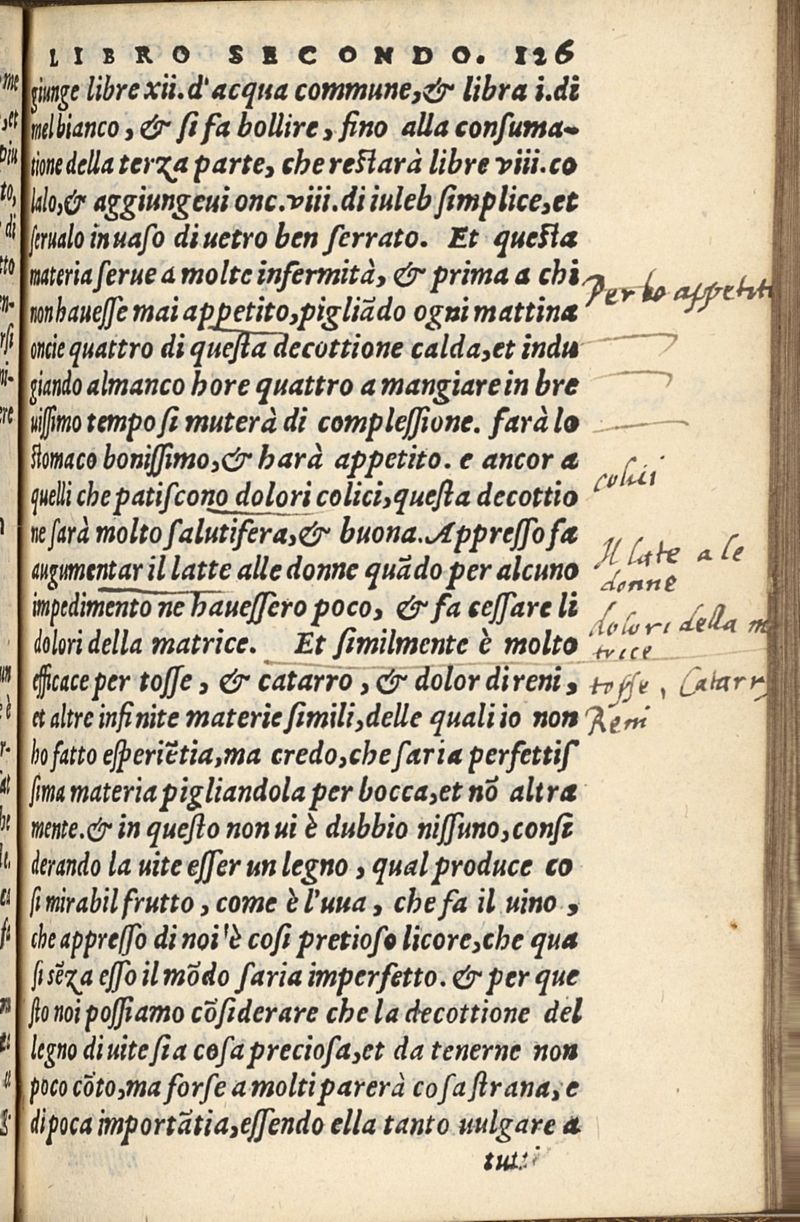 LIBRO SECONDO. 126
giunge libre xii. d'acqua commune, & libra i. di
mel bianco, & si fa bollire, fino alla consuma-
tione della terza parte, che restarà libre viii. co
lalo, & aggiungeui onc. viii. di iuleb simplice, et
serualo in uaso di uetro ben serrato. Et questa
materia serue a molte infermità, & prima a chi
non hauesse mai appetito, pigliãdo ogni mattina
oncie quattro di questa decottione calda, et indu
giando almanco hore quattro a mangiare in bre
uissimo tempo si muterà di complessione. farà lo
stomaco bonissimo, & harà appetito. e ancor a
quelli che patiscono dolori colici, questa decottio
ne sarà molto salutifera, & buona. Appresso fa
augumentar il latte alle donne quãdo per alcuno
impedimento ne hauessero poco, & fa cessare li
dolori della matrice. Et similmente è molto
efficace per tosse, & catarro, & dolor di reni,
et altre infinite materie simili, delle quali io non
ho fatto esperiẽtia, ma credo, che saria perfettis
sima materia pigliandola per bocca, et nõ altra
mente. & in questo non ui è dubbio nissuno, consi
derando la uite esser un legno, qual produce co
si mirabil frutto, come è l'uua, che fa il uino,
che appresso di noi è cosi pretioso licore, che qua
si sẽza esso il mõdo saria imperfetto. & per que
sto noi possiamo cõsiderare che la decottione del
legno di uite sia cosa preciosa, et da tenerne non
poco cõto, ma forse a molti parerà cosa strana, e
di poca importãtia, essendo ella tanto uulgare a
tutti
Per lo appetit
colici
Il late a le
donne
dolori della m
trice
tosse, Catarr
Reni